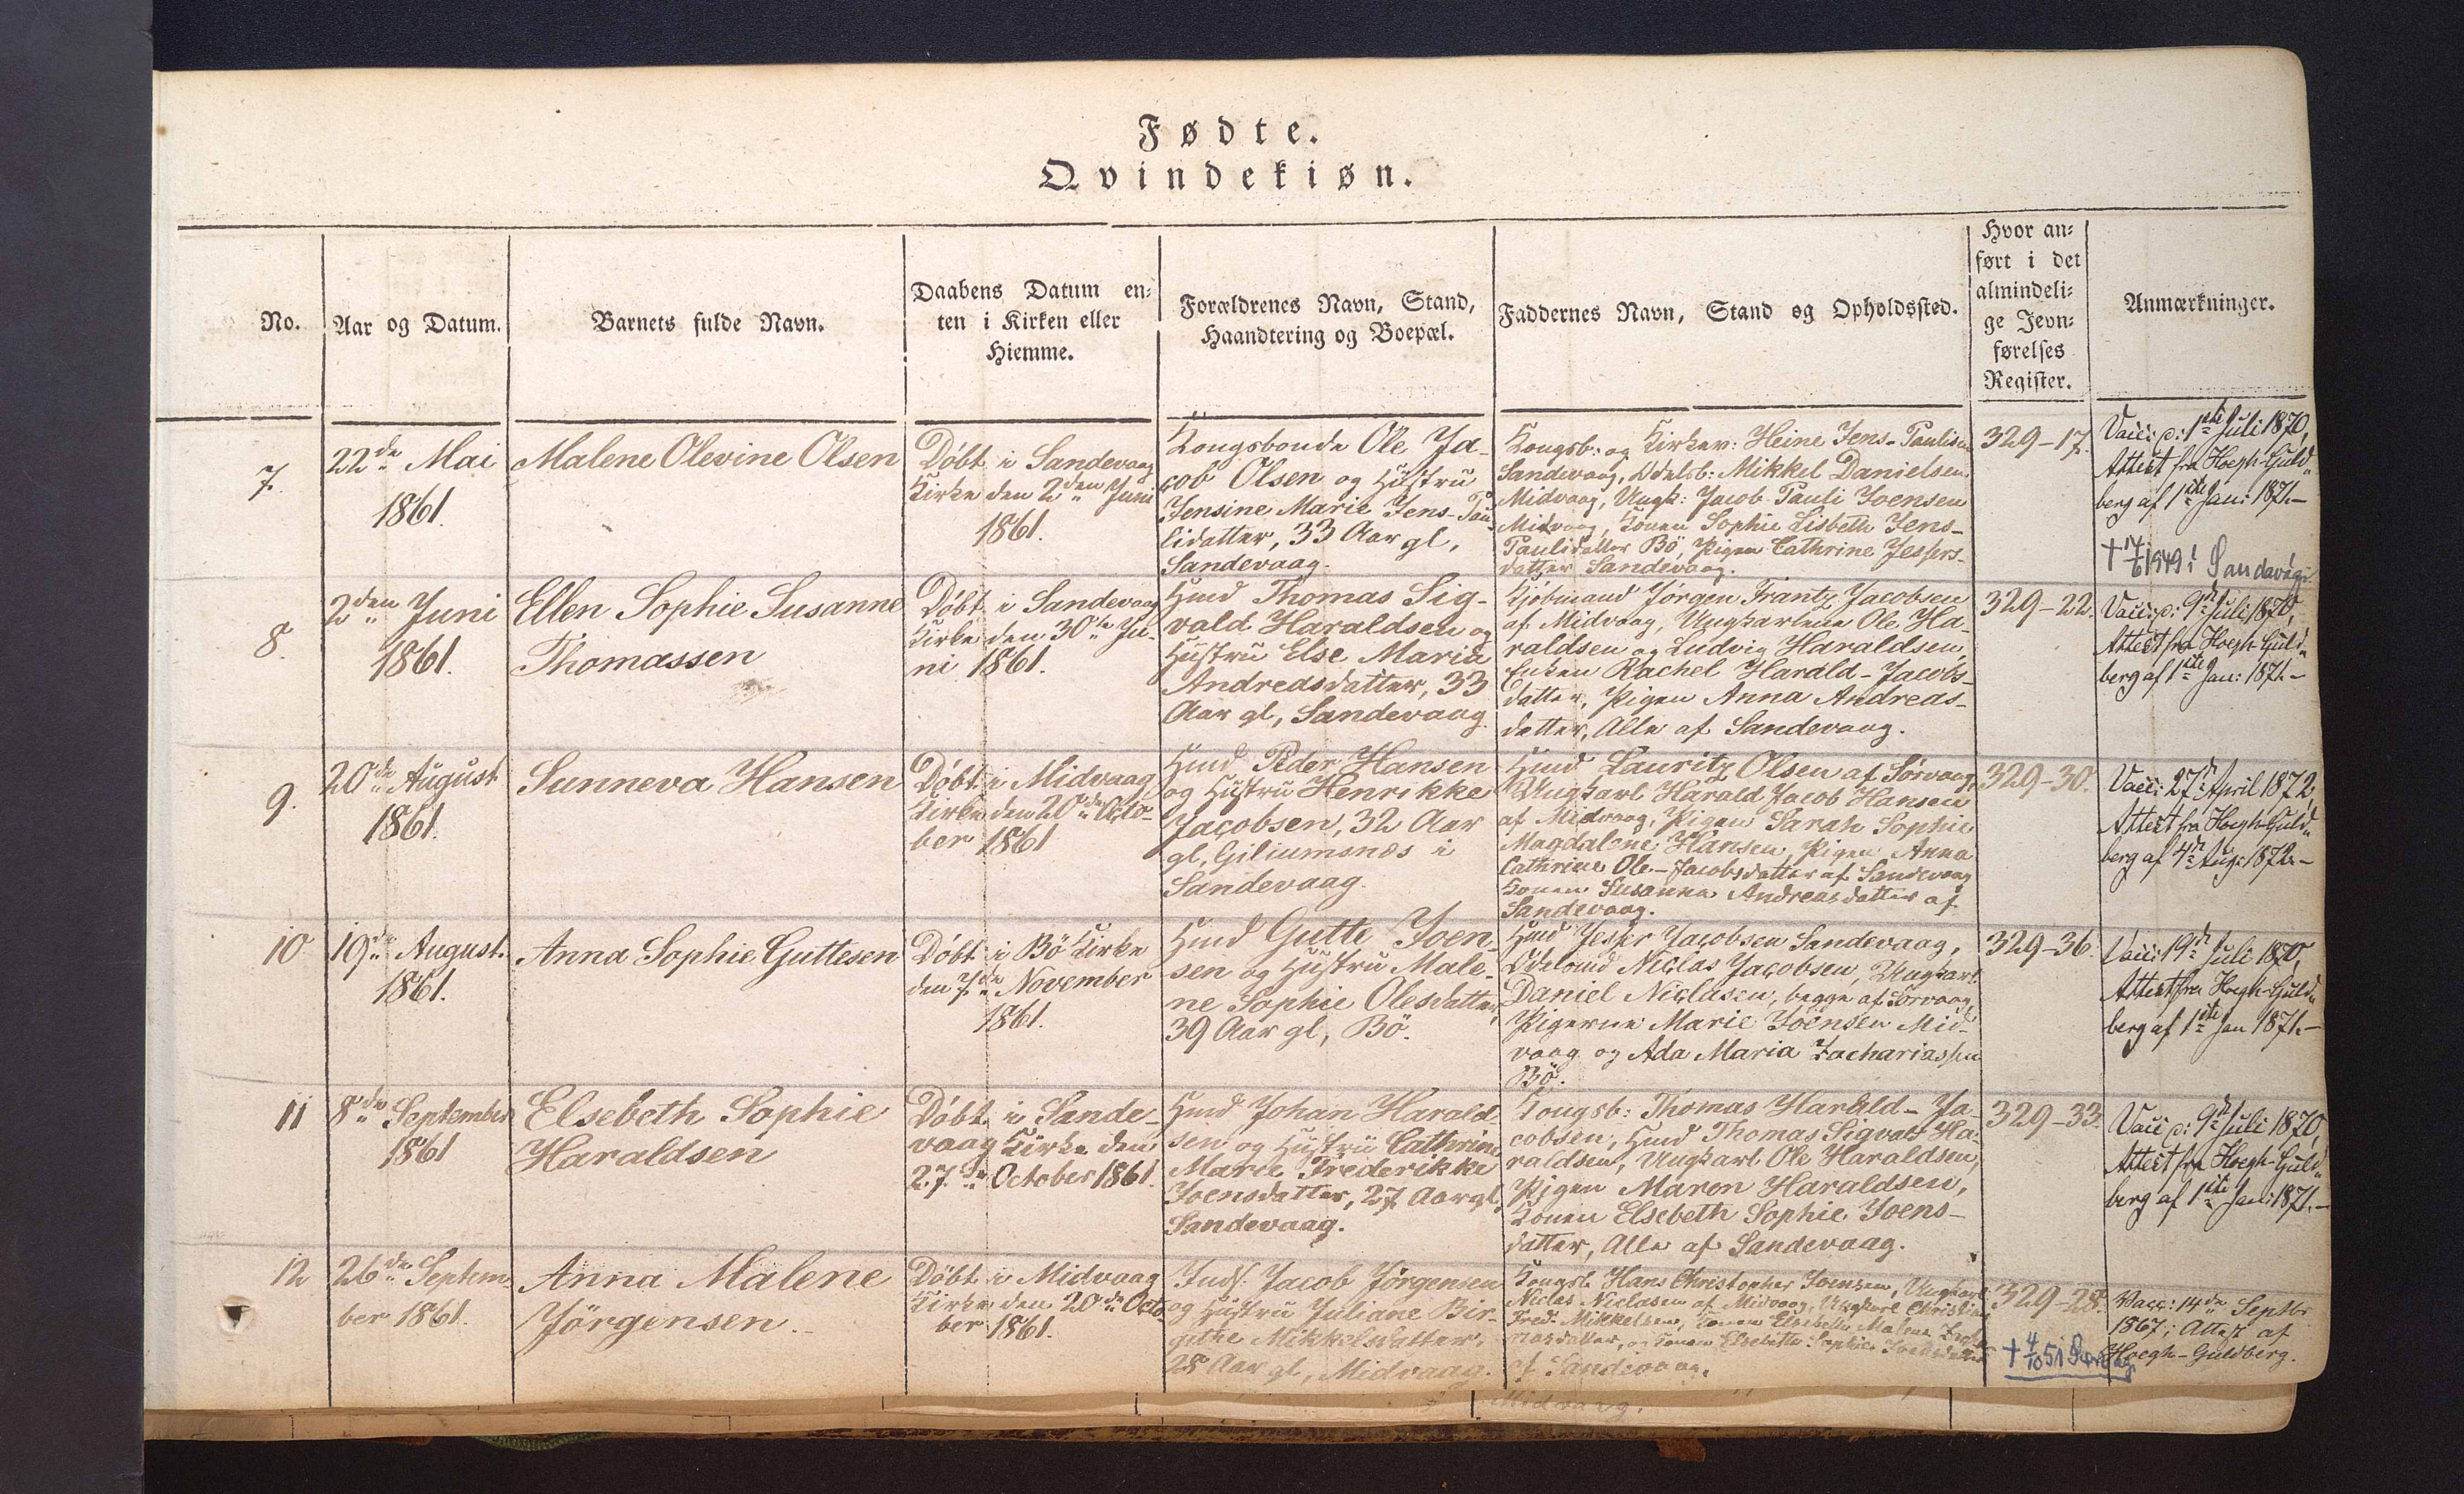 Fødte.
Qvindekiøn.
No.
Aar og Datum.
Barnets fulde Navn.
Daabens Datum en-
ten i Kirken eller
Hiemme.
Forældrenes Navn, Stand,
Haandtering og Boepæl.
Faddernes Navn, Stand og Opholdssted.
Hvor an-
ført i det
almindeli-
ge Jevn-
førelses
Register.
Anmærkninger.
7.
22de Mai
1861.
Malene Olevine Olsen
Döbt i Sandevaag
Kirke den 2den Juni
1861.
Kongsbonde Ole Ja-
cob Olsen og Hustru
Jensine Marie Jens-Pau-
lidatter, 33 Aar gl,
Sandevaag.
Kongsb: og Kirkev: Heine Jens-Paulisen
Sandevaag, Odelsb: Mikkel Danielsen
Midvaag, Ungk: Jacob Pauli Joensen
Midvaag, Konen Sophie Lisbeth Jens-
Paulidatter Bö, Pigen Cathrine Jespers-
datter Sandevaag.
329-17.
Vacc: d: 1ste Juli 1870,
Attest fra Hoegh-Guld-
berg af 1ste Jan: 1871.-
+ 14/6 1949 i Sandavági
8.
2den Juni
1861.
Ellen Sophie Susanne
Thomassen
Döbt i Sandevaag
Kirke den 30te Ju-
ni 1861.
Hmd Thomas Sig-
vald Haraldsen og
Hustru Else Maria
Andreasdatter, 33
Aar gl, Sandevaag.
Kjöbmand Jörgen Frantz Jacobsen
af Midvaag, Ungkarlene Ole Ha-
raldsen og Ludvig Haraldsen,
Enken Rachel Harald-Jacobs-
datter, Pigen Anna Andreas-
datter, Alle af Sandevaag.
329-22.
Vacc: d: 9de Juli 1870,
Attest fra Hoegh-Guld-
berg af 1ste Jan: 1871.-
9.
20de August
1861.
Sunneva Hansen
Döbt i Midvaag
Kirke den 20de Octo-
ber 1861
Hmd Peder Hansen
og Hustru Henrikke
Jacobsen, 32 Aar
gl, Giliumsnæs i
Sandevaag.
Hmd Lauritz Olsen af Sörvaag,
Ungkarl Harald Jacob Hansen
af Midvaag, Pigen Sarah Sophie
Magdalene Hansen, Pigen Anna
Cathrine Ole-Jacobsdatter af Sandevaag
Konen Susanna Andreasdatter af
Sandevaag.
329-30.
Vacc: 27de April 1872,
Attest fra Hoegh-Guld-
berg af 4de Aug: 1872.-
10
19de August.
1861.
Anna Sophie Guttesen
Döbt i Bö Kirke
den 7de November
1861.
Hmd Gutte Joen-
sen og Hustru Male-
ne Sophie Olesdatter,
39 Aar gl, Bö.
Hmd Jesper Jacobsen Sandevaag,
Odelsmd Niclas Jacobsen, Ungkarl
Daniel Niclasen, begge af Sörvaag,
Pigerne Marie Joensen Mid-
vaag og Ada Maria Zachariassen
Bö.
329-36.
Vacc: 19de Juli 1870,
Attest fra Hoegh-Guld-
berg af 1ste Jan 1871.-
11
8de September
1861
Elsebeth Sophie
Haraldsen
Döbt i Sande-
vaag Kirke den
27de October 1861.
Hmd Johan Harald-
sen og Hustru Cathrine
Marie Frederikke
Joensdatter, 27 Aar gl,
Sandevaag.
Kongsb: Thomas Harald-Ja-
cobsen, Hmd Thomas Sigvald Ha-
raldsen, Ungkarl Ole Haraldsen,
Pigen Maren Haraldsen,
Konen Elsebeth Sophie Joens-
datter, Alle af Sandevaag.
329-33.
Vacc d: 9de Juli 1870,
Attest fra Hoegh-Guld-
berg af 1ste Jan: 1871.-
12
26de Septem-
ber 1861.
Anna Malene
Jörgensen.
Döbt i Midvaag
Kirke den 20de Octo-
ber 1861.
Inds. Jacob Jörgensen
og Hustru Juliane Bir-
githe Mikkelsdatter,
28 Aar gl, Midvaag.
Kongsb. Hans Christopher Joensen, Ungkarl
Niclas Niclasen af Midvaag, Ungkarl Christian
Fred: Mikkelsen, Konen Elsebeth Malene
og Konen Elsebeth Sophie
af Sandevaag.
329-28.
Vacc: 14de Septbr
1867; Attest af
Hoegh-Guldberg.
+ 4/10 51
Midvaag.